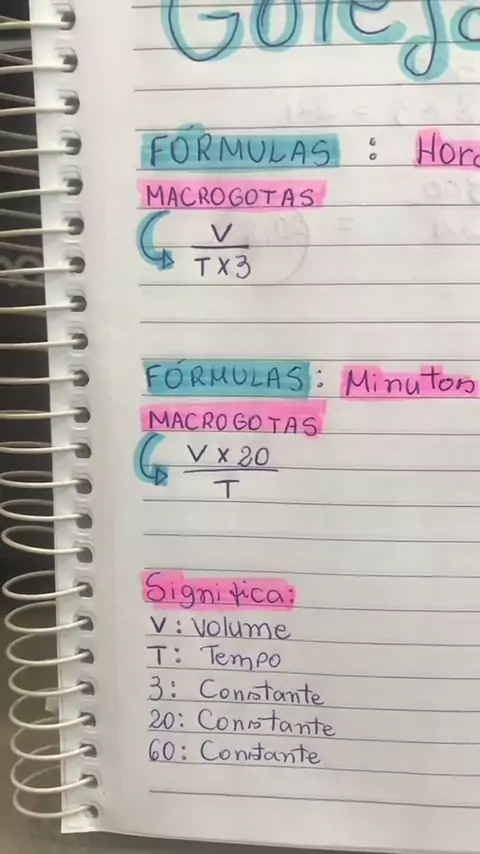 FÓRMULAS : Hora
MACROGOTAS
V
T x 3
FÓRMULAS: Minutos
MACROGOTAS
V x 20
T
Significa:
V: Volume
T: Tempo
3: Constante
20: Constante
60: Constante